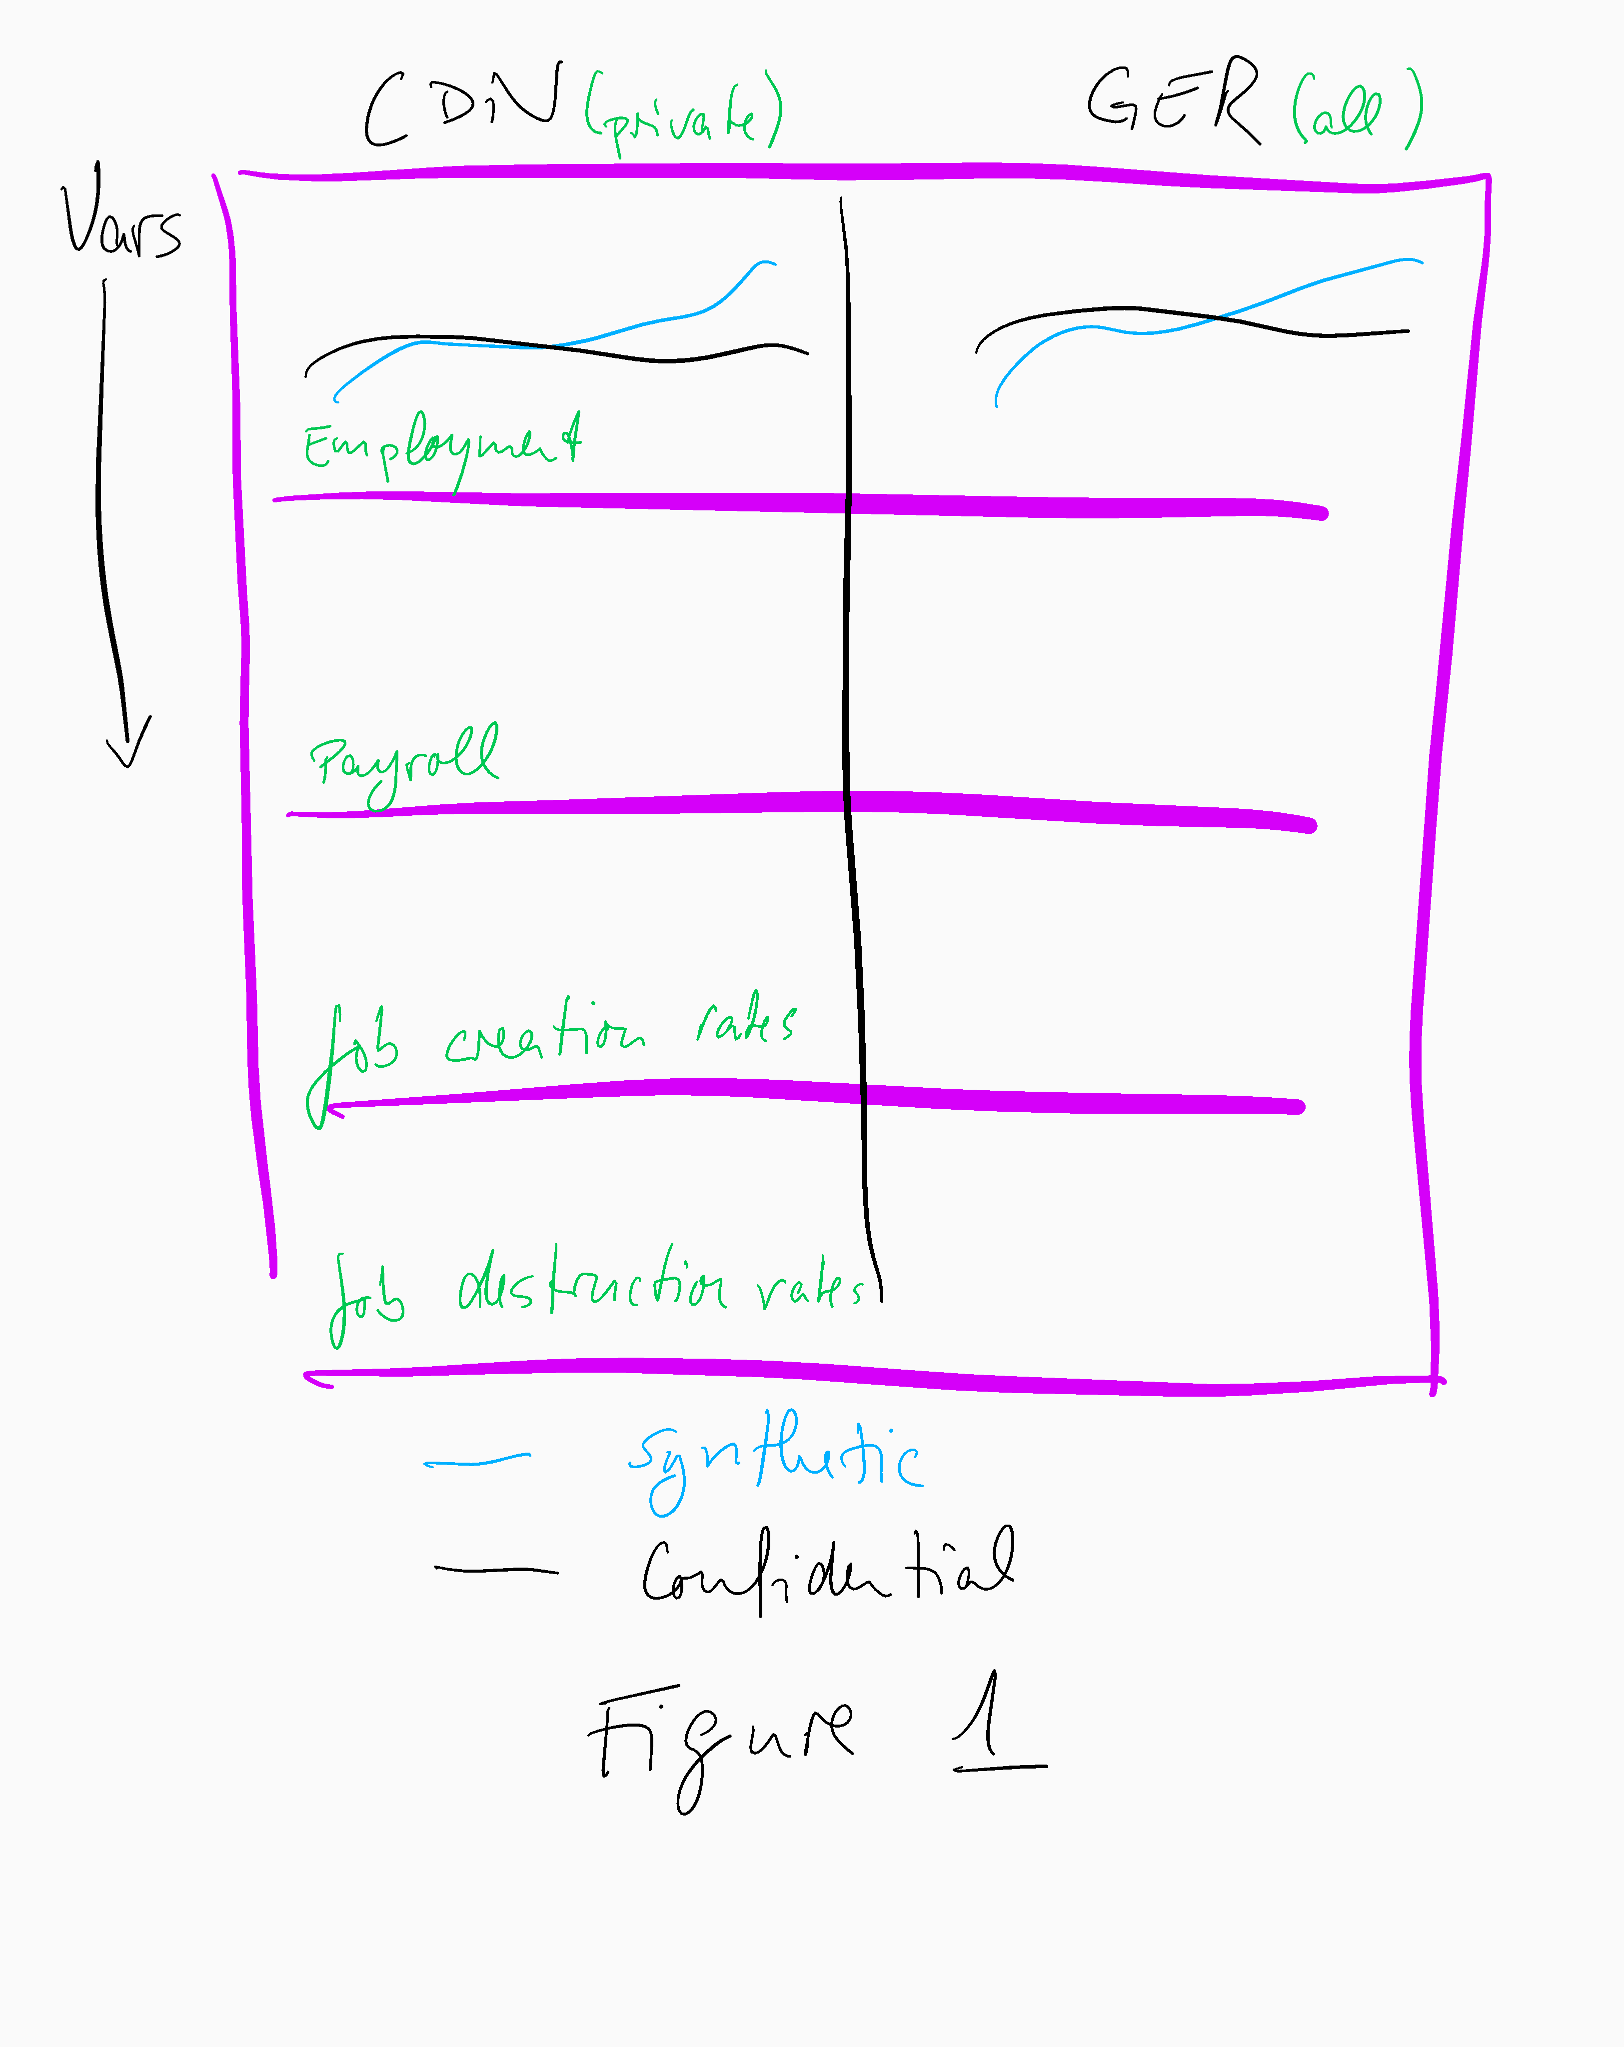 CDN (private) GER (all)
Vars
Employment
Payroll
Job creation rates
Job destruction rates
Synthetic
Confidential
Figure 1